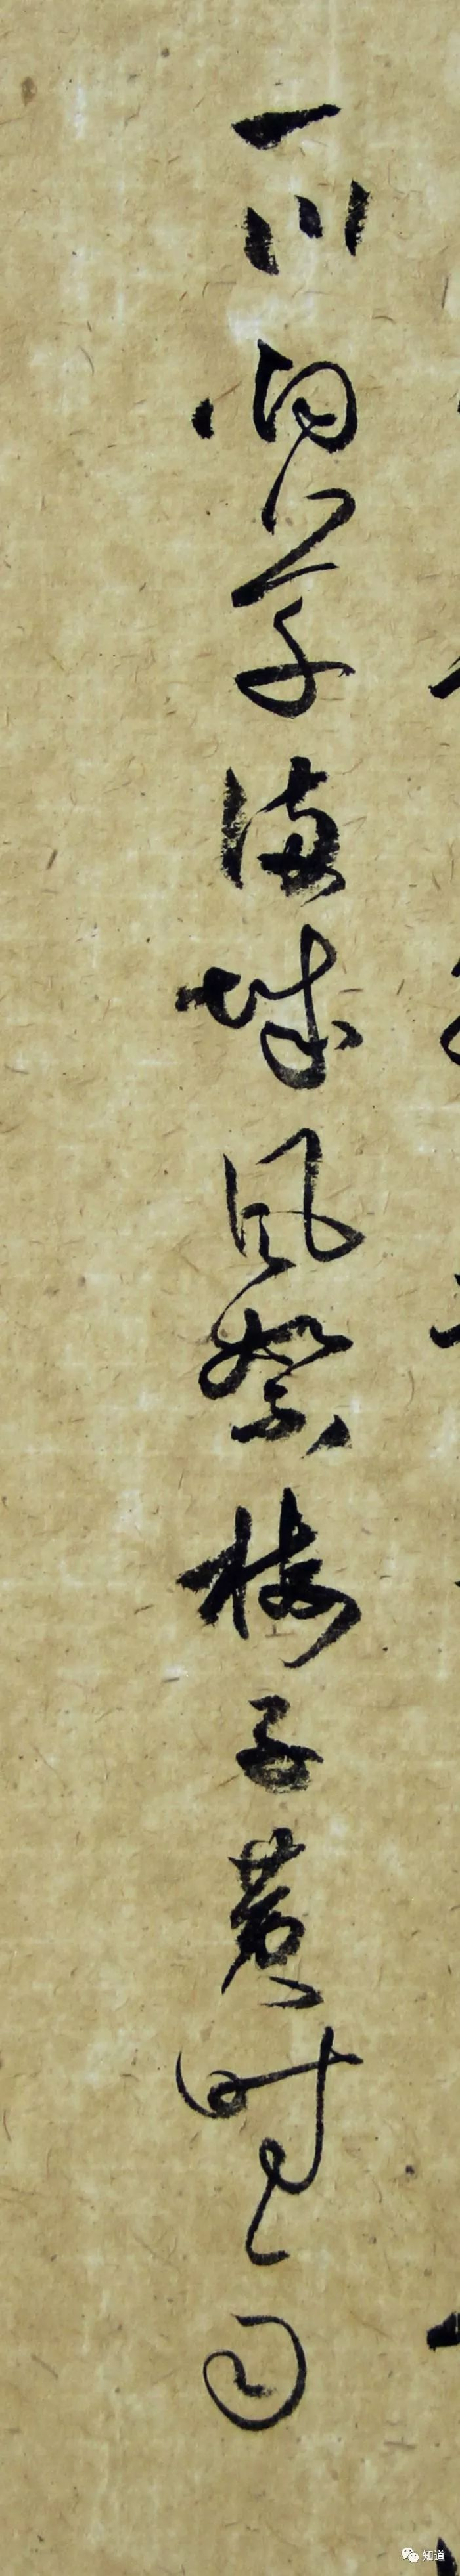 一川烟草满城风絮梅子黄时雨
知道